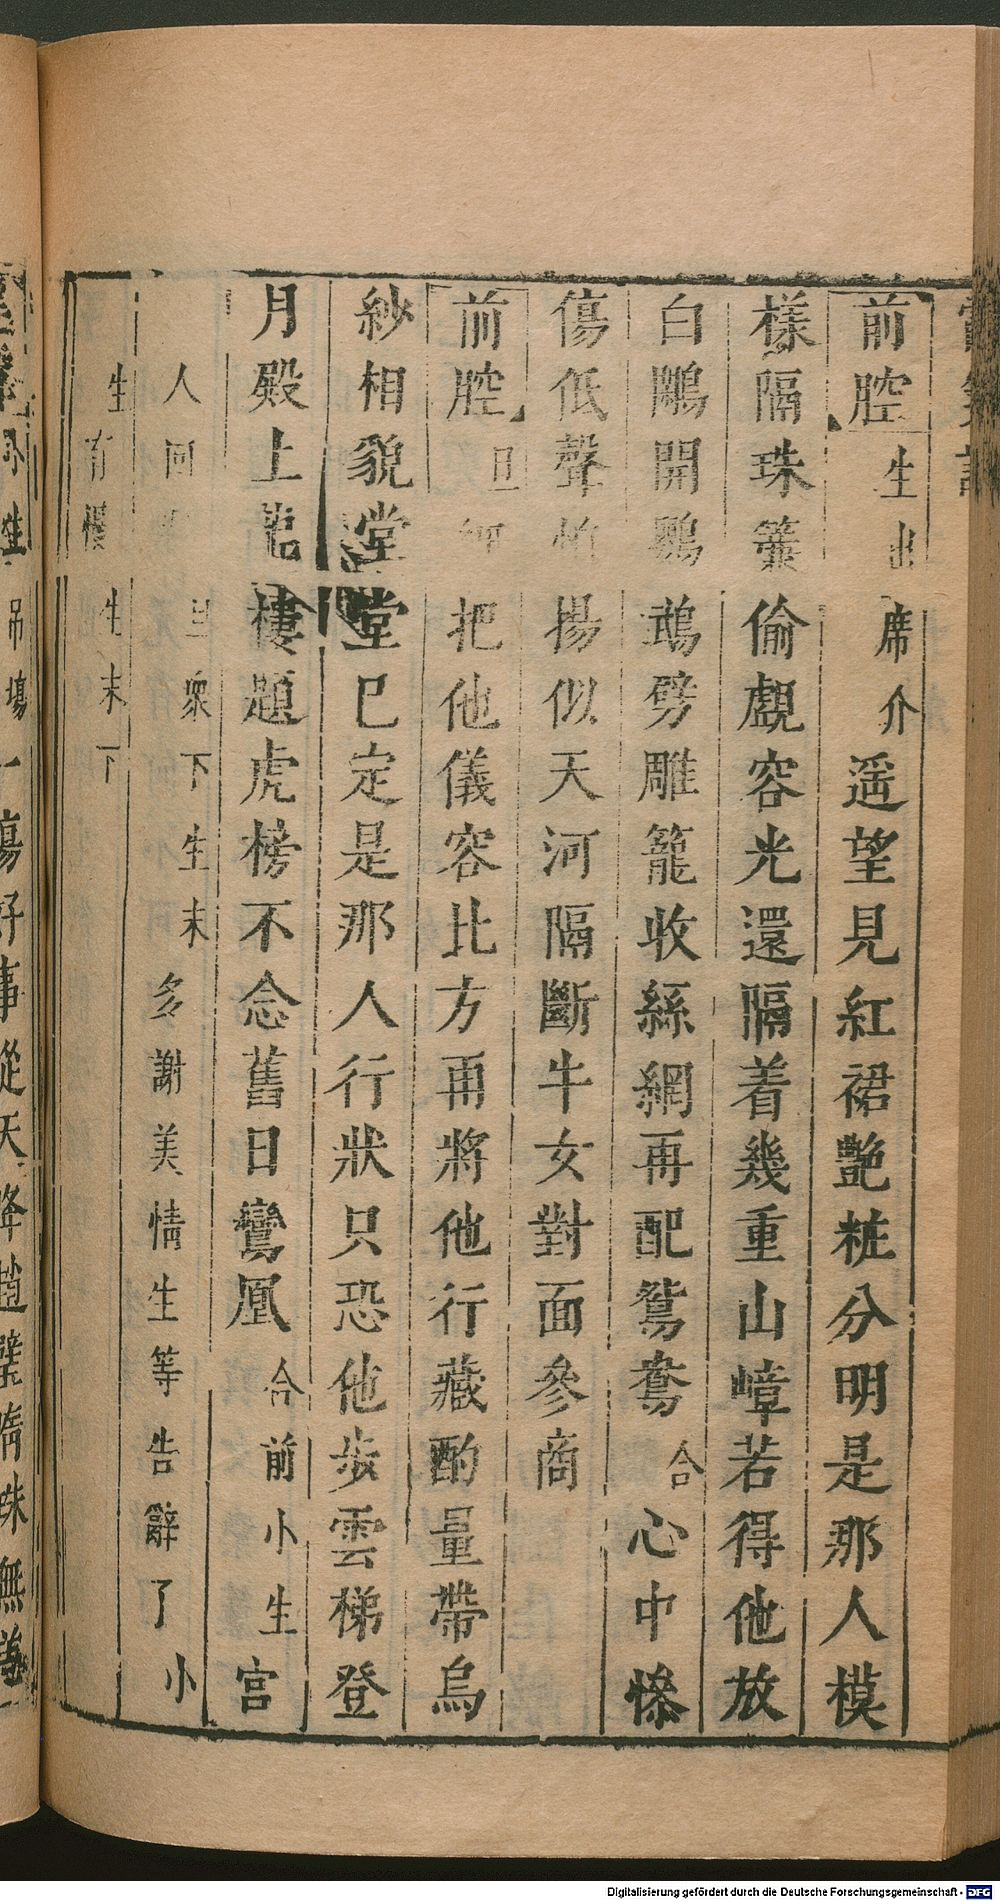 前腔生出席介遥望見紅裙艶粧分明是那人模
樣隔珠簾偷覷容光還隔着幾重山嶂若得他放
白鷴開鸚鵡劈雕籠收絲網再配鴛鴦合心中慘
傷低聲怕揚似天河隔斷牛女對面參商
前腔旦把他儀容比方再將他行藏酌量帶烏
紗相貌堂堂已定是那人行狀只恐他步雲梯登
月殿上龍樓題虎榜不念舊日鸞凰合前小生宮
人回衆下生末多謝美情生等告辭了小
生有慢生末下
Digitalisierung gefördert durch die Deutsche Forschungsgemeinschaft - DFG